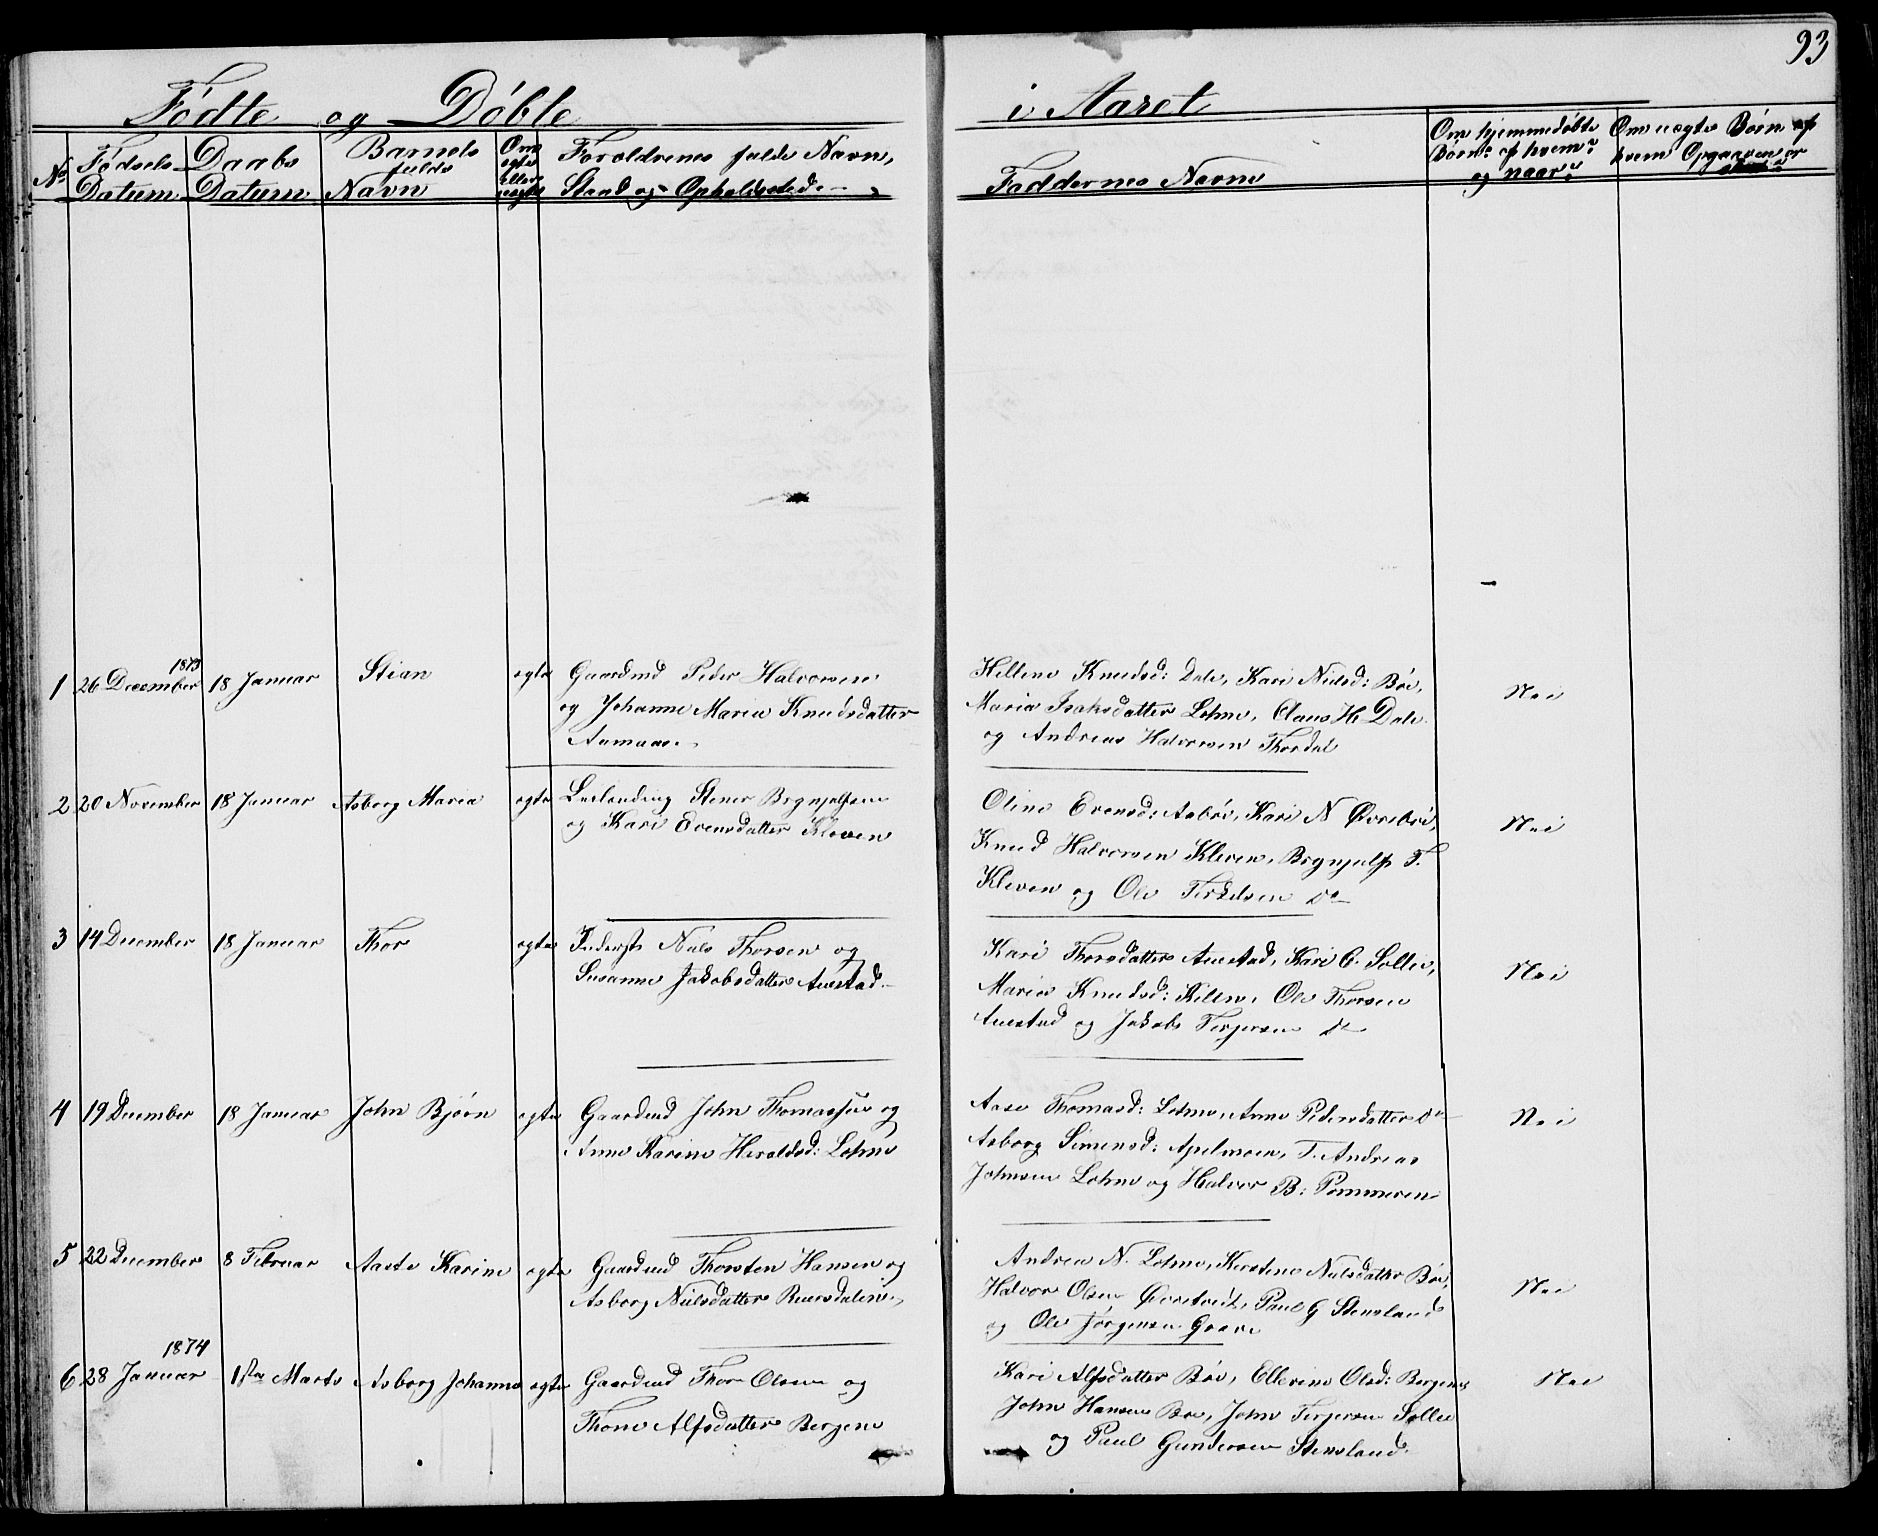 93
Fødte og Døbte i Aaret
No
Fødsels Datum
Daabs Datum
Barnets fulde Navn
Om ægte eller uægte
Forældrenes fulde Navn,
Stand og Opholdssted.
Faddernes Navne
Om hjemmedøbte Børn: af hvem? og naar?
Om uægte Børn af hvem Opgaven er skeet?
1873
1 26 December 18 Januar Stian ægte
Gaardmd Peder Halvorsen
og Johanne Maria Knudsdatter
Aamaas.
Hellene Knudsd: Dale, Kari Nielsd: Bøe,
Maria Isaksdatter Lohne, Claus H Dale
og Andreas Halvorsen Thordal
Nei
2 20 November 18 Januar Asborg Maria ægte
Leilænding Stener Brynjulfsen
og Kari Evensdatter Kleven
Oline Evensd: Aabøe, Kari N Øvrebøe,
Knud Halvorsen Kleven, Brynjulf T.
Kleven og Ole Terkelsen Do
Nei
3 14 December 18 Januar Thor ægte
Inderst Niels Thorsen og
Susanne Jakobsdatter Auestad
Kari Thorsdatter Auestad, Kari C. Sollie,
Maria Knudsd: Kilen, Ole Thorsen
Auestad og Jakob Terjersen Do
Nei
4 19 December 18 Januar John Bjørn ægte
Gaardmd John Thomassen og
Anne Karine Heraldsd: Lohne
Aase Thomasd: Lohne, Anne Pedersdatter Do
Asborg Simensd: Apelmoen, T. Andreas
Johnsen Lohne og Halvor B: Pommeren
Nei
5 22 December 8 Februar Aaste Karine ægte
Gaardmd Thorsten Hansen og
Asborg Nielsdatter Ruersdalen
Andrea N. Lohne, Kirstine Nielsdatter Bøe,
Halvor Olsen Øvretveit, Paul G Stensland
og Ole Jørgensen Greve
Nei
1874
6 28 Januar 1ste Marts Asborg Johanne ægte
Gaardmd Thor Olsen og
Thone Alfsdatter Bergene
Kari Alfsdatter Bøe, Ellevine Olsd: Bergene
John Hansen Bøe, John Terjersen Sollie
og Paul Gundersen Stensland.
Nei